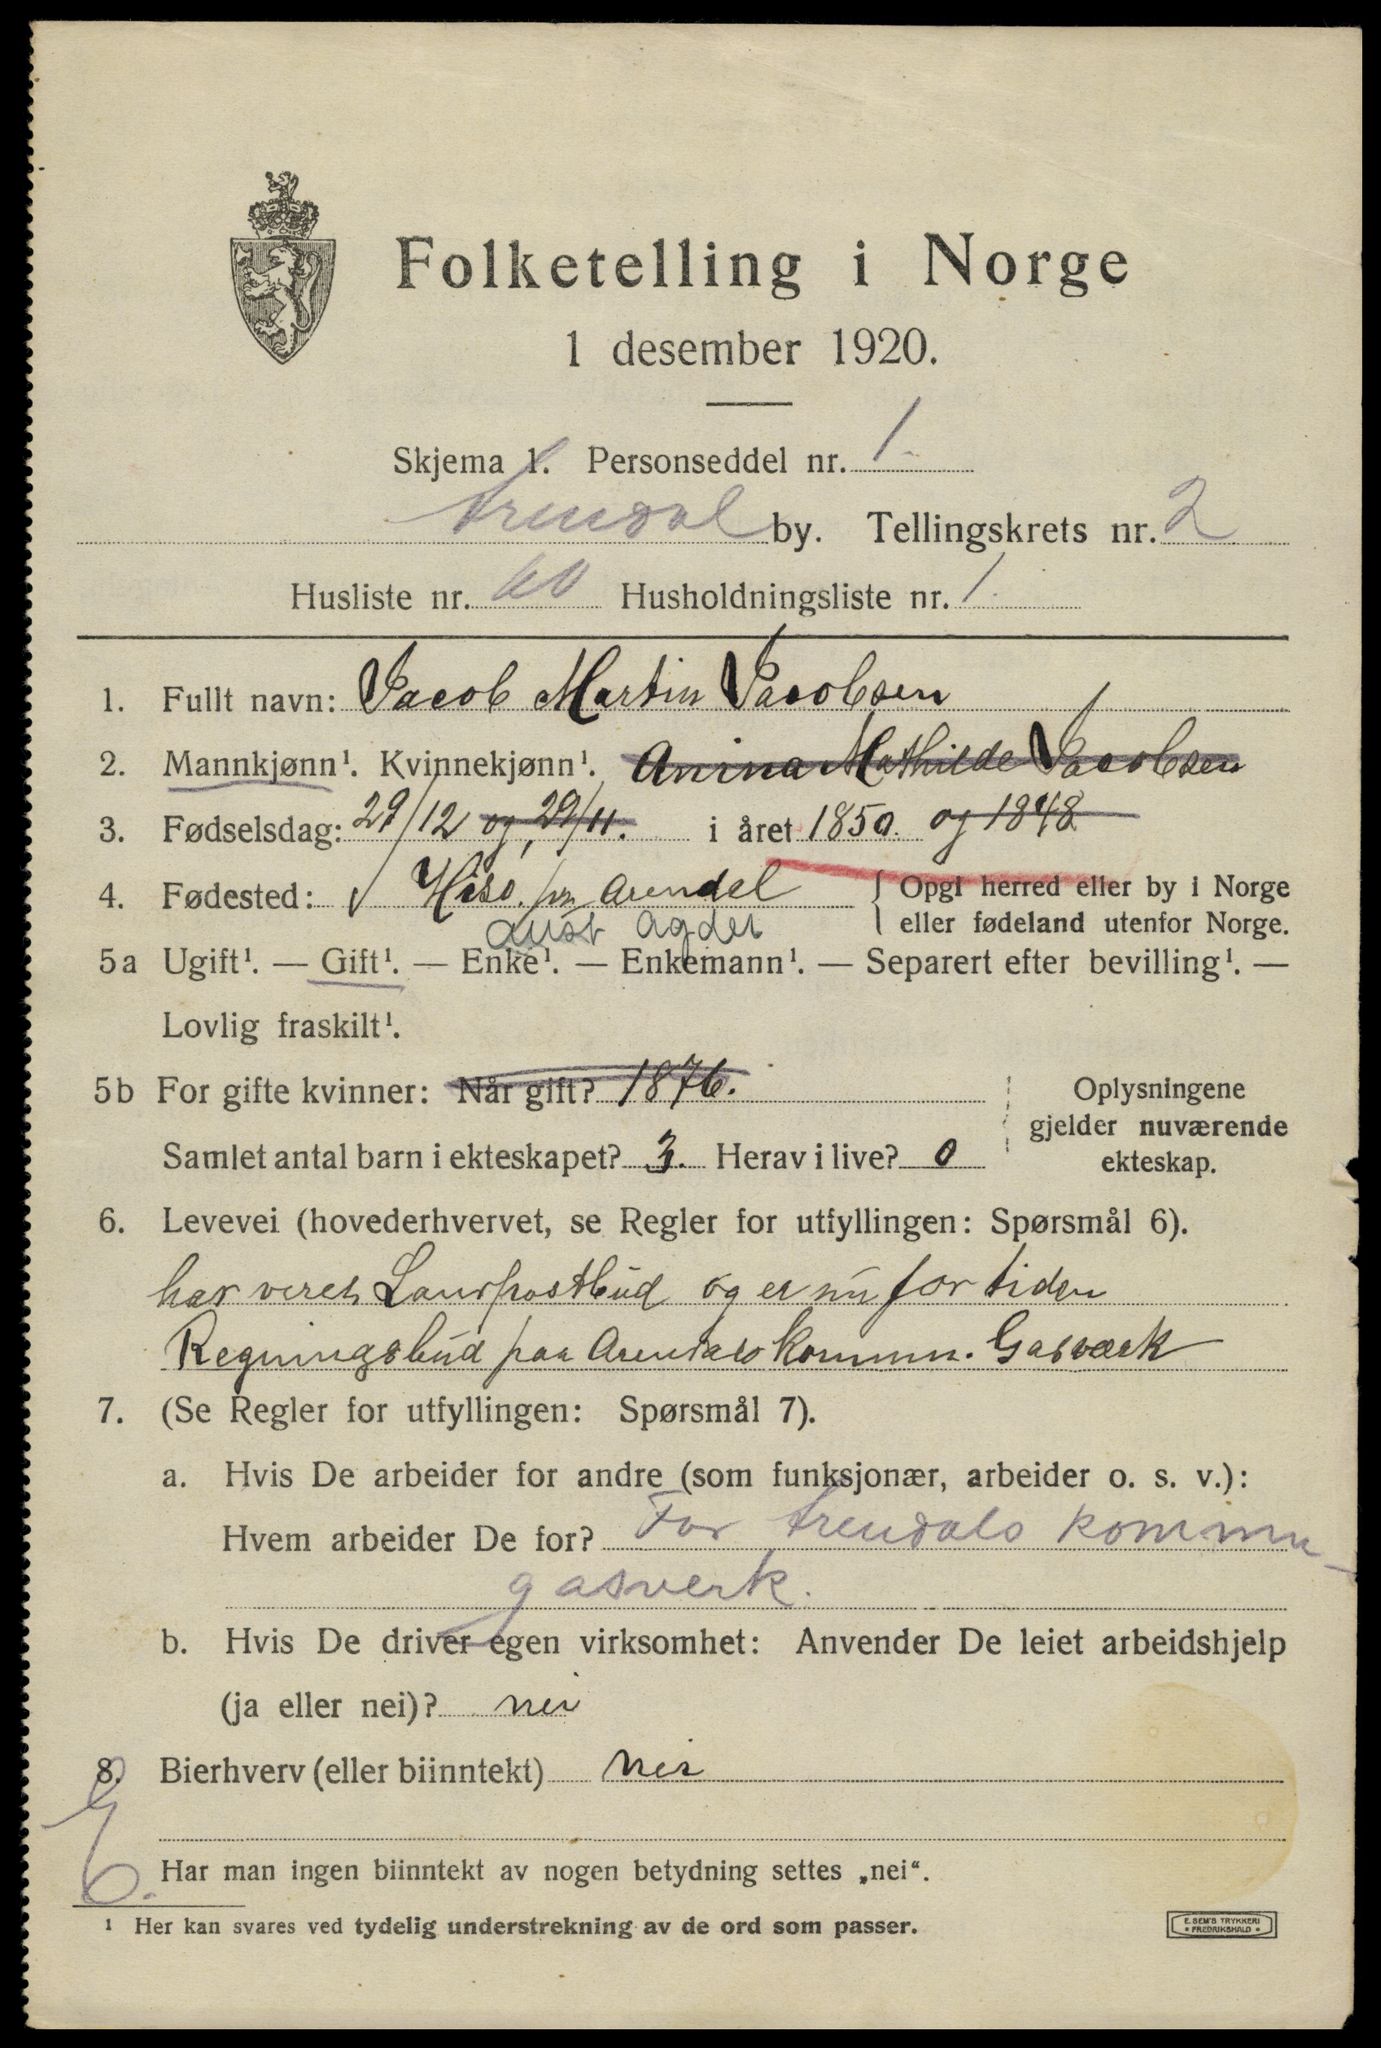 Folketelling i Norge
1 desember 1920.
Skjema 1. Personseddel nr. 1.
Arendal by. Tellingskrets nr. 2
Husliste nr. 60 Husholdningsliste nr. 1.
1. Fullt navn: Jacob Martin Jacobsen
2. Mannkjønn¹. Kvinnekjønn¹. Anina Mathilde Jacobsen
3. Fødselsdag: 29/12 og, 29/11. i året 1850. og 1848
4. Fødested: Hisø. pr. Arendal { Opgi herred eller by i Norge
eller fødeland utenfor Norge.
Aust Agder
5a Ugift¹. — Gift¹. — Enke¹. — Enkemann¹. — Separert efter bevilling¹. —
Lovlig fraskilt¹.
5b For gifte kvinner: Når gift? 1876. Oplysningene
gjelder nuværende
Samlet antal barn i ekteskapet? 3. Herav i live? 0 ekteskap.
6. Levevei (hovederhvervet, se Regler for utfyllingen: Spørsmål 6).
har veret postbud og er nu for tiden
Regningsbud paa Arendals Kommun. Gasværk
7. (Se Regler for utfyllingen: Spørsmål 7).
a. Hvis De arbeider for andre (som funksjonær, arbeider o. s. v.):
Hvem arbeider De for? For Arendals kommu-
gasverk.
b. Hvis De driver egen virksomhet: Anvender De leiet arbeidshjelp
(ja eller nei)? nei
8. Bierhverv (eller biinntekt) nei
Har man ingen biinntekt av nogen betydning settes „nei“.
¹ Her kan svares ved tydelig understrekning av de ord som passer.
E. SEM'S TRYKKERI
FREDRIKSHALD